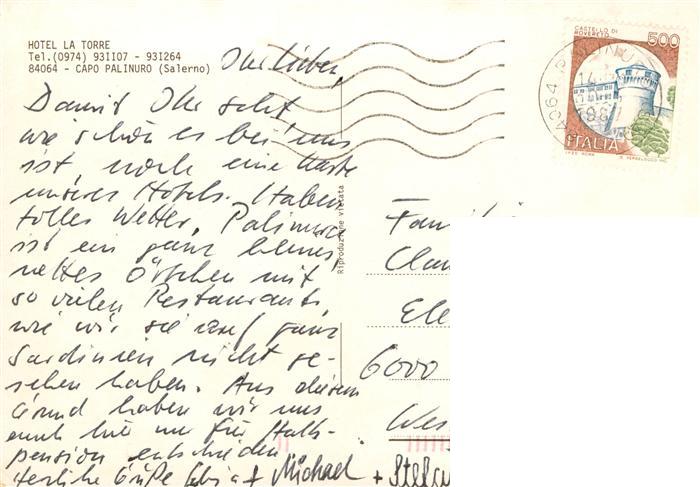 HOTEL LA TORRE
Tel.(0974) 931107 - 931264
84064 - CAPO PALINURO (Salerno)
Ihr Lieben,
Damit Ihr seht
wie schön es bei uns
ist, noch eine Karte
unseres Hotels. Haben
tolles Wetter, Palinuro
ist ein ganz kleines,
nettes Örtchen mit
so vielen Restaurants,
wie wir sie auf ganz
Sardinien nicht ge-
sehen haben. Aus diesem
Grund haben wir uns
auch hier nur für Halb-
pension entschieden
Herzliche Grüße Michael + Stefan
Riproduzione vietata
CASTELLO DI
ROVERETO
500
ITALIA
1987
Fami
Clau
Ele
6000
Wes